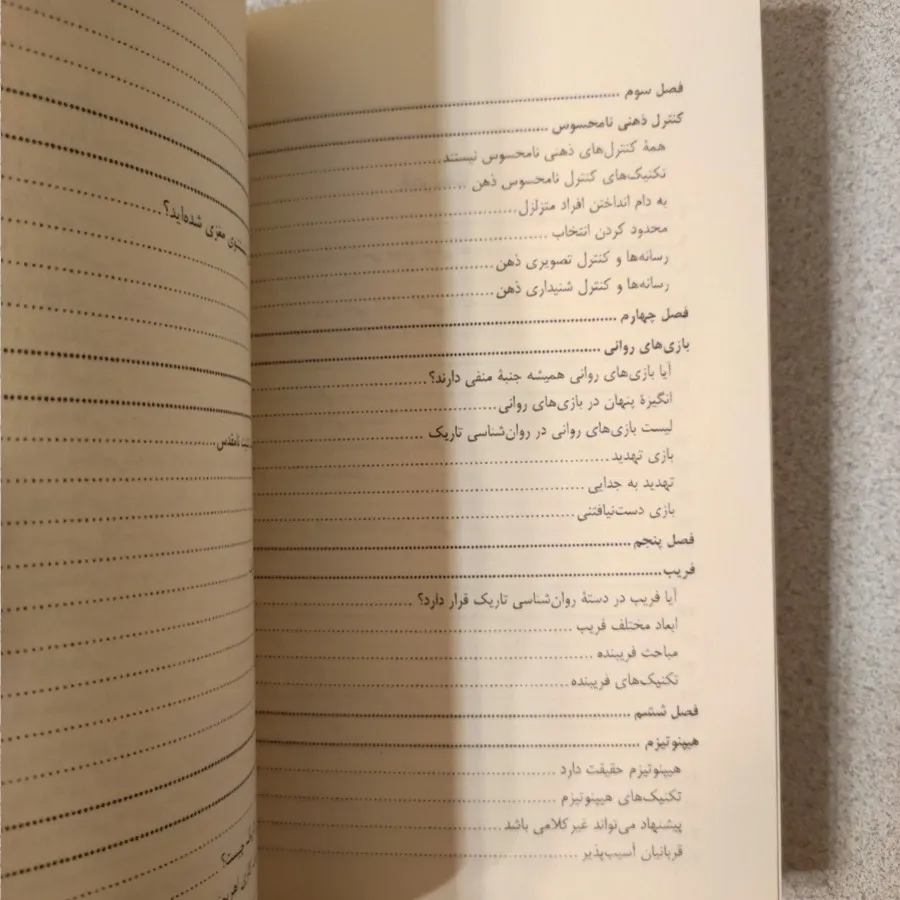 فصل سوم
کنترل ذهنی نامحسوس
همهٔ کنترل‌های ذهنی نامحسوس نیستند
تکنیک‌های کنترل نامحسوس ذهن
به دام انداختن افراد متزلزل
محدود کردن انتخاب
رسانه‌ها و کنترل تصویری ذهن
رسانه‌ها و کنترل شنیداری ذهن
فصل چهارم
بازی‌های روانی
آیا بازی‌های روانی همیشه جنبهٔ منفی دارند؟
انگیزهٔ پنهان در بازی‌های روانی
لیست بازی‌های روانی در روان‌شناسی تاریک
بازی تهدید
تهدید به جدایی
بازی دست‌نیافتنی
فصل پنجم
فریب
آیا فریب در دستهٔ روان‌شناسی تاریک قرار دارد؟
ابعاد مختلف فریب
مباحث فریبنده
تکنیک‌های فریبنده
فصل ششم
هیپنوتیزم
هیپنوتیزم حقیقت دارد
تکنیک‌های هیپنوتیزم
پیشنهاد می‌تواند غیرکلامی باشد
قربانیان آسیب‌پذیر
مغزی شده‌اید؟
نامقدس
چیست؟